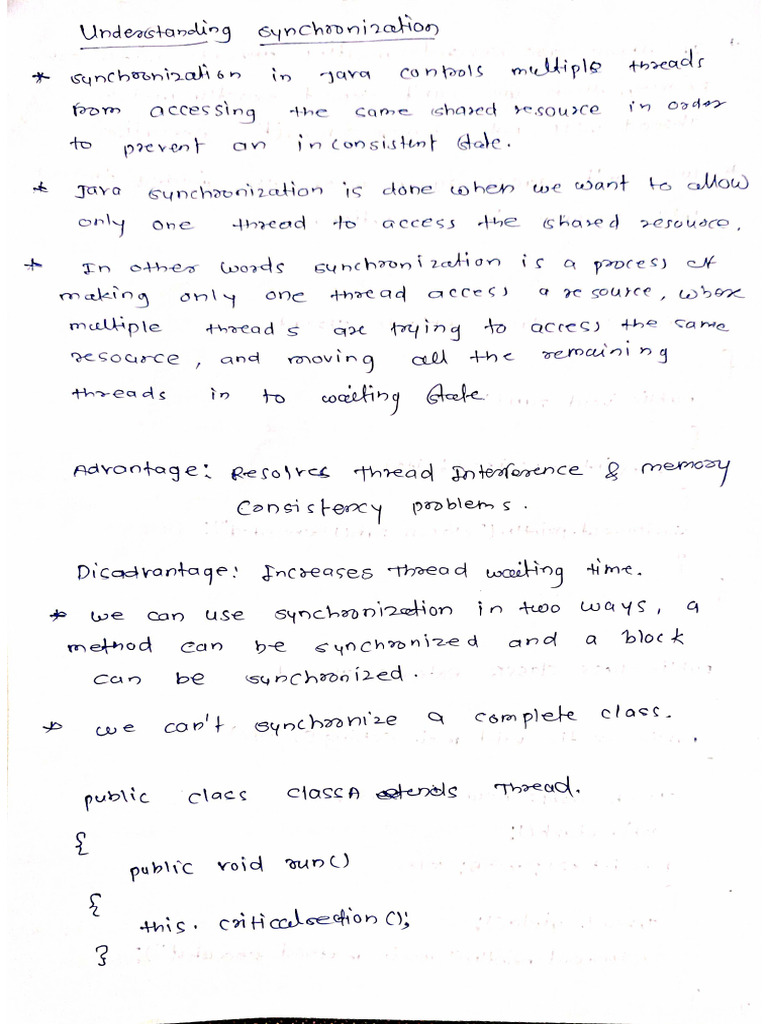 Understanding synchronization
* synchronization in Java controls multiple threads
from accessing the same shared resource in order
to prevent an inconsistent state.
* Java synchronization is done when we want to allow
only one thread to access the shared resource.
* In other words synchronization is a process of
making only one thread access a resource, where
multiple threads are trying to access the same
resource, and moving all the remaining
threads in to waiting state.
Advantage: Resolves thread Interference & memory
Consistency problems.
Disadvantage: Increases thread waiting time.
* we can use synchronization in two ways, a
method can be synchronized and a block
can be synchronized.
* we can't synchronize a complete class.
public class classA extends Thread.
{
public void run()
{
this. criticalsection();
}